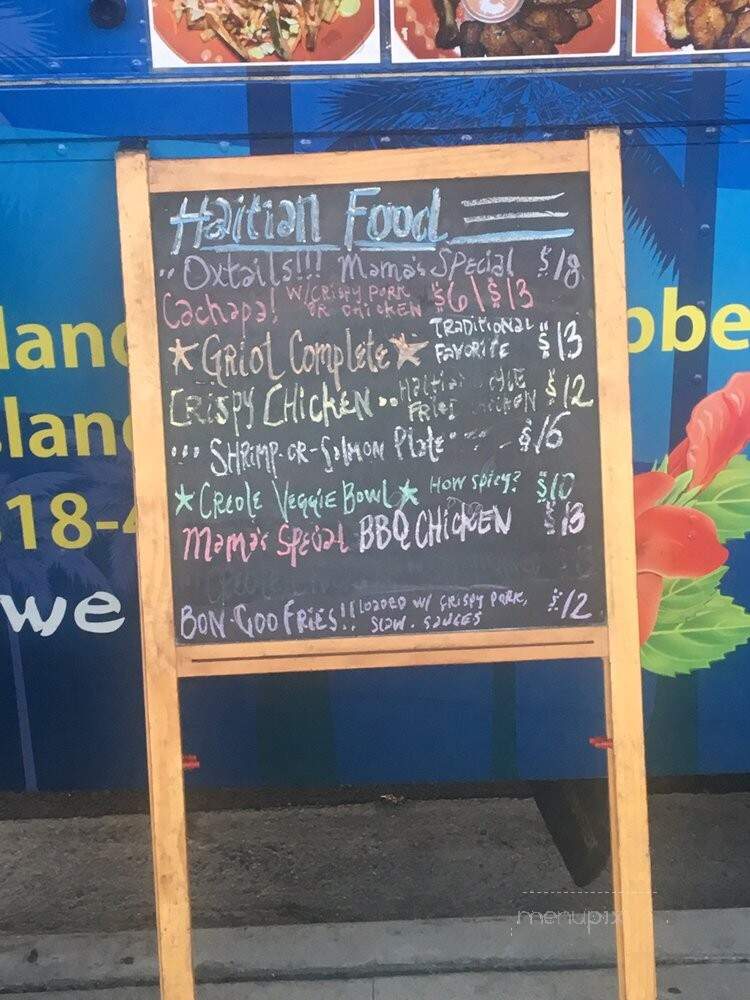 Haitian Food
Oxtails!!! Mama's Special $18
Cachapa! W/Crispy Pork or Chicken $6 | $13
Griot Complete Traditional Favorite $13
Crispy Chicken Haitian Fried Chicken $12
Shrimp-or-Salmon Plate $16
Creole Veggie Bowl How spicy? $10
Mama's Special BBQ Chicken $13
Bon Goo Fries!! Loaded w/ Crispy Pork, $12
Slaw. Sauces
land
bbe
slan
818-4
we
menupix